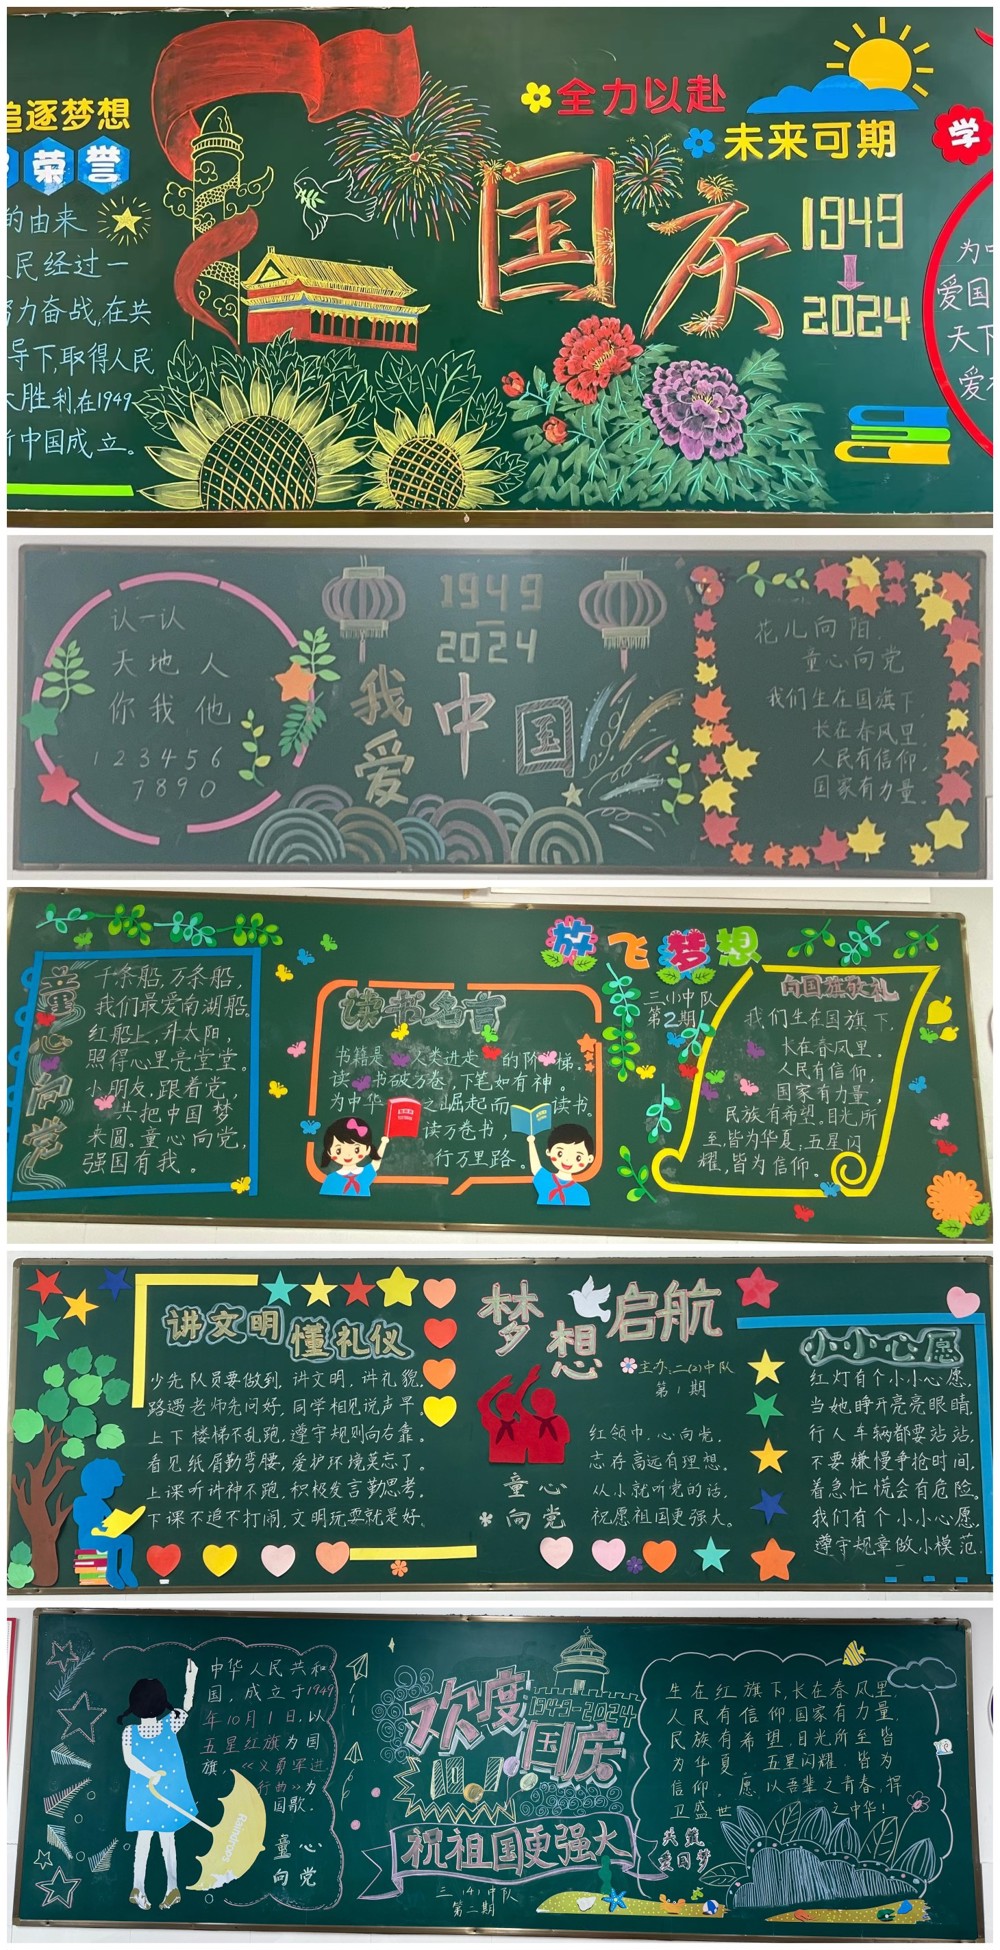 追逐梦想
荣誉
的由来
民经过一
努力奋战,在共
导下,取得人民
大胜利在1949
新中国成立。
全力以赴
未来可期
国庆
1949
2024
学
为中
爱国
天下
爱
认一认
天地人
你我他
123456
7890
1949
2024
我爱中国
花儿向阳,
童心向党
我们生在国旗下,
长在春风里,
人民有信仰,
国家有力量。
童心向党
千条船,万条船,
我们最爱南湖船。
红船上,升太阳,
照得心里亮堂堂。
小朋友,跟着党,
共把中国梦
来圆。童心向党,
强国有我。
读书名言
书籍是人类进走的阶梯。
读书破万卷,下笔如有神。
为中华之崛起而读书。
读万卷书,
行万里路。
放飞梦想
三(1)中队
第2期
向国旗敬礼
我们生在国旗下,
长在春风里。
人民有信仰,
国家有力量,
民族有希望。目光所
至,皆为华夏,五星闪
耀,皆为信仰。
讲文明懂礼仪
少先队员要做到,讲文明,讲礼貌,
路遇老师先问好,同学相见说声早。
上下楼梯不乱跑,遵守规则向右靠。
看见纸屑勤弯腰,爱护环境莫忘了。
上课听讲神不跑,积极发言勤思考。
下课不追不打闹,文明玩耍就是好。
梦想启航
主办:二(2)中队
第1期
童心
向党
红领巾,心向党,
志存高远有理想。
从小就听党的话,
祝愿祖国更强大。
小小心愿
红灯有个小小心愿,
当她睁开亮亮眼睛,
行人车辆都要站站,
不要嫌慢争抢时间,
着急忙慌会有危险。
我们有个小小心愿,
遵守规章做小模范。
中华人民共和
国,成立于1949
年10月1日,以
五星红旗为国
旗,《义勇军进
行曲》为
国歌。
童心
向党
Raindrops
欢度国庆
1949-2024
祝祖国更强大
三(4)中队
第二期
生在红旗下,长在春风里,
人民有信仰,国家有力量,
民族有希望,目光所至皆
为华夏,五星闪耀,皆为
信仰。愿以吾辈之青春,捍
卫盛世之中华!
爱国梦